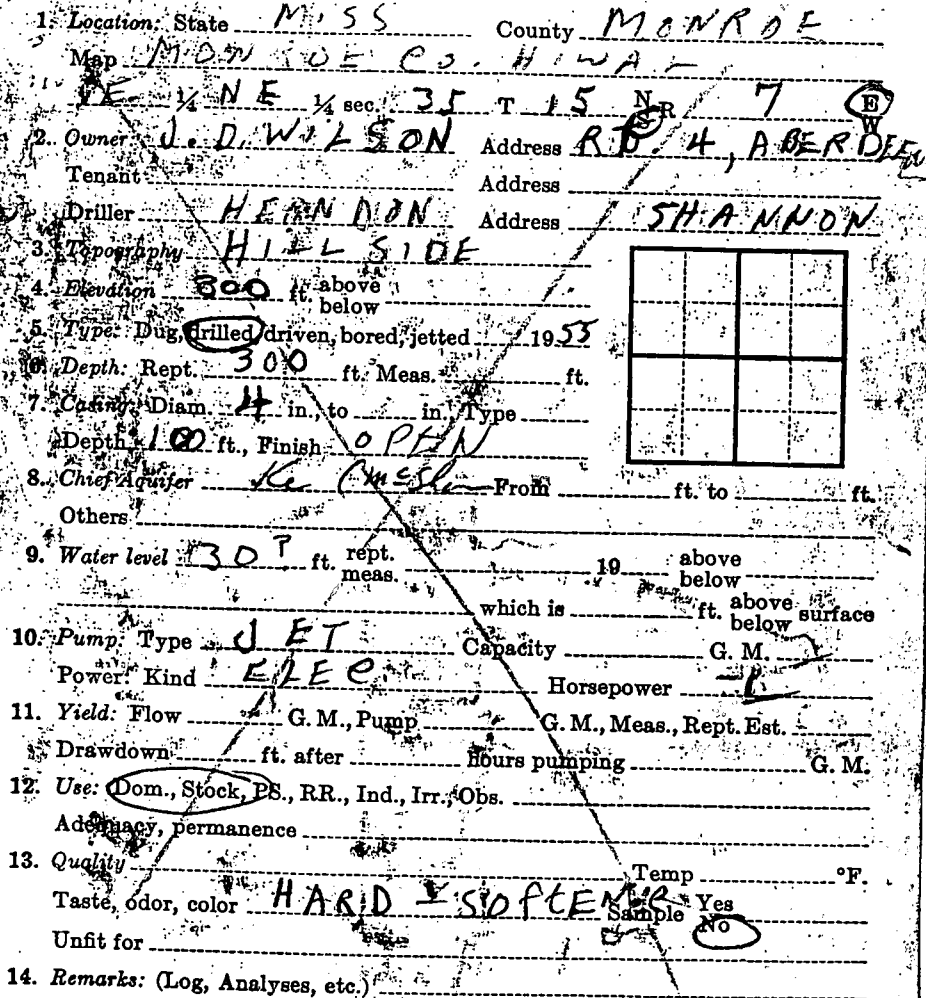 1. Location: State MISS County MONROE
Map MONROE CO. HIWAY
NE 1/4 NE 1/4 sec. 35 T 15 N S R 7 E W
2. Owner: J. D. WILSON Address RT. 4, ABERDEEN
Tenant Address
Driller HERNDON Address SHANNON
3. Topography HILL SIDE
4. Elevation 300 ft. above below
5. Type: Dug, drilled, driven, bored, jetted 1955
6. Depth: Rept. 300 ft. Meas. ft.
7. Casing: Diam. 4 in., to in., Type
Depth 100 ft., Finish OPEN
8. Chief Aquifer Ke (McSh From ft. to ft.
Others
9. Water level 30? ft. rept. meas. 19 above below
which is ft. above below surface
10. Pump: Type JET Capacity G. M.
Power: Kind ELEC. Horsepower
11. Yield: Flow G. M., Pump G. M., Meas., Rept. Est.
Drawdown ft. after hours pumping G. M.
12. Use: Dom., Stock, PS., RR., Ind., Irr., Obs.
Adequacy, permanence
13. Quality Temp °F.
Taste, odor, color HARD - SOFTENER Sample Yes No
Unfit for
14. Remarks: (Log, Analyses, etc.)